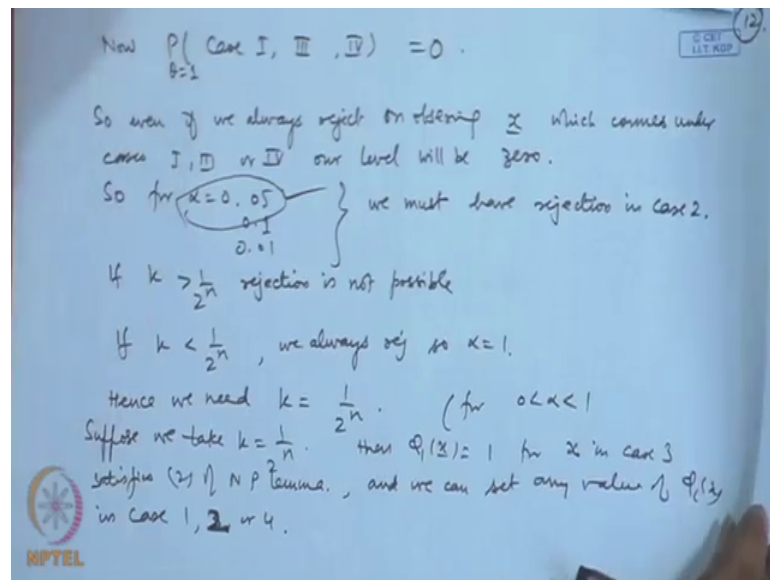 12.
© CET
I.I.T. KGP
Now P ( Case I, III, IV) = 0.
θ=1
So even if we always reject on observing x which comes under
cases I, III or IV our level will be zero.
So for α = 0.05 } we must have rejection in case 2.
0.1
0.01
If k > 1/2^n rejection is not possible
If k < 1/2^n, we always rej so α = 1.
Hence we need k = 1/2^n. (for 0<α<1
Suppose we take k = 1/2^n. then φ₁(x) = 1 for x in case 3
satisfies (2) of NP Lemma., and we can set any value of φ₁(x)
in case 1, 2 or 4.
NPTEL